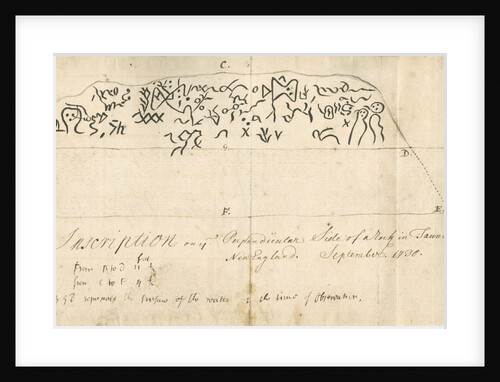 C.
G
D
F.
E.
Inscription on yͤ Perpendicular Side of a Rock in Taun
New England. September 1730.
feet
from A to D 11 ½
from C to F 4 ½
represents the Surface of the water the time of Observation.